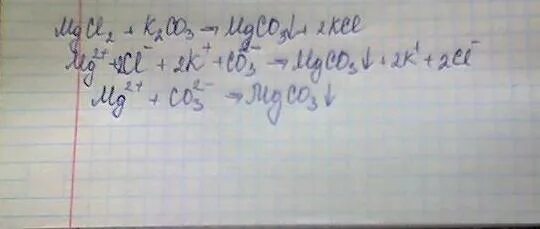 MgCl₂ + K₂CO₃ → MgCO₃↓ + 2KCl
Mg²⁺ + 2Cl⁻ + 2K⁺ + CO₃²⁻ → MgCO₃↓ + 2K⁺ + 2Cl⁻
Mg²⁺ + CO₃²⁻ → MgCO₃↓